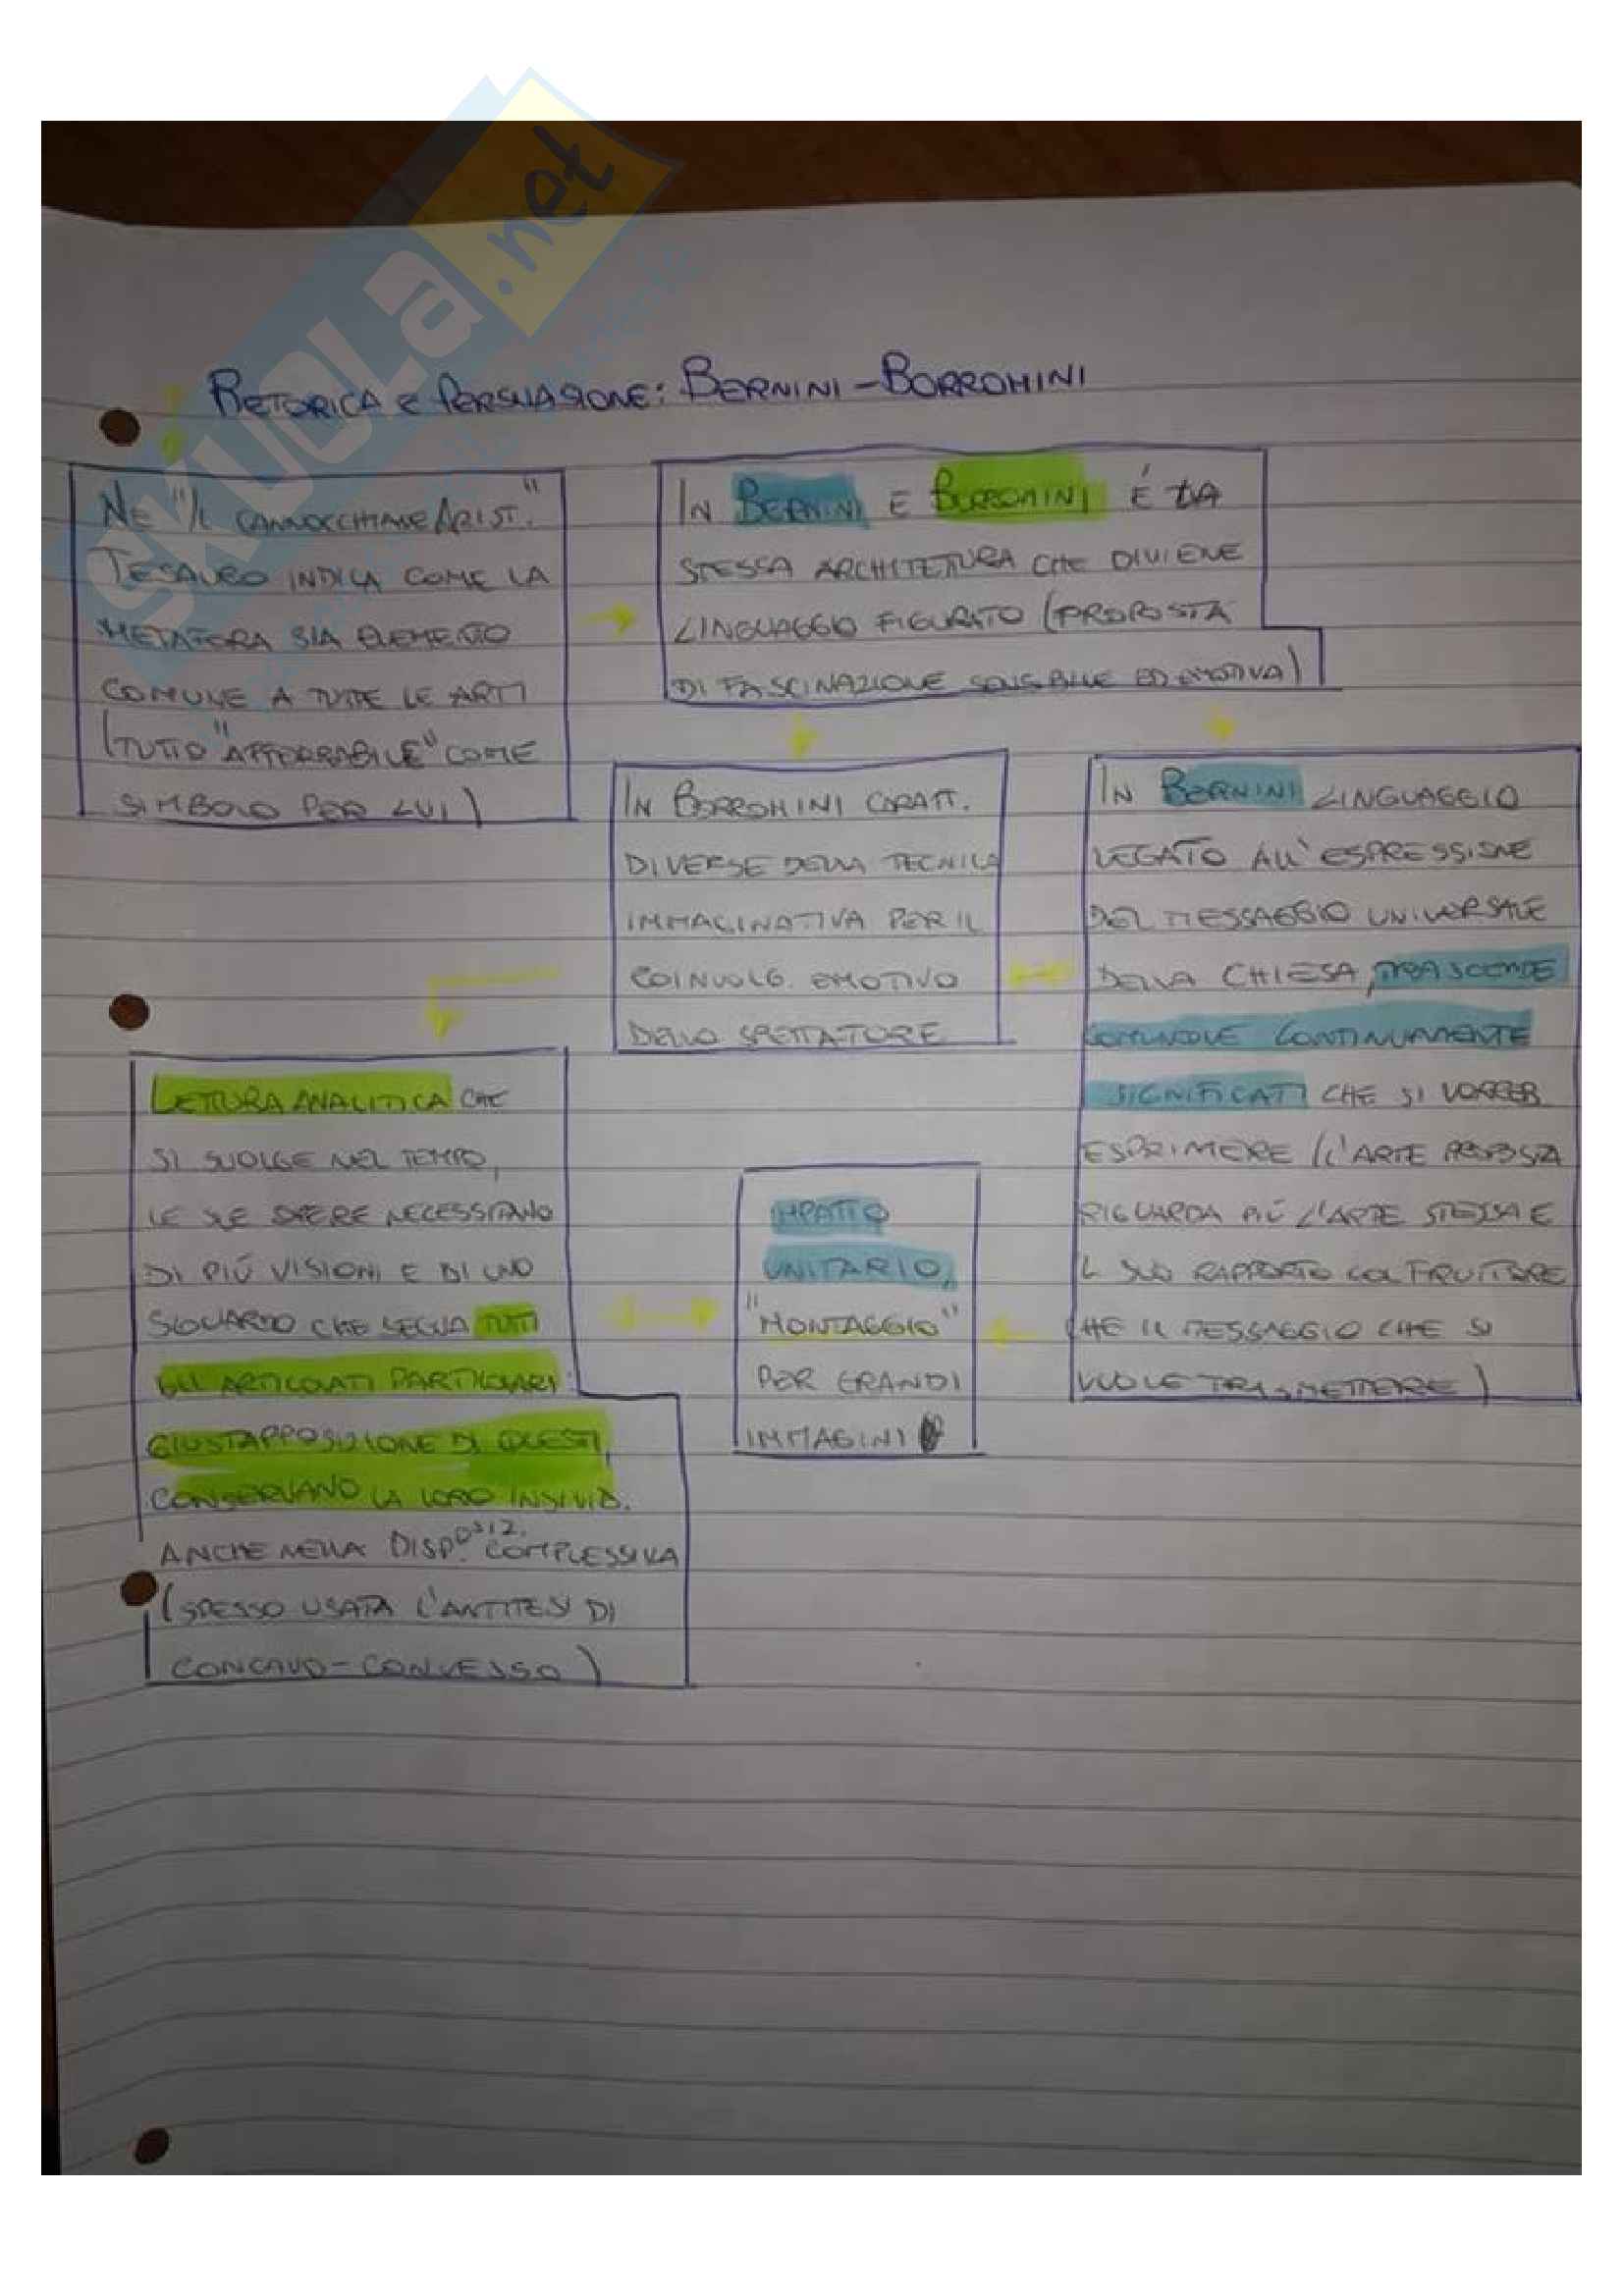 SKUOLA.net
RETORICA E PERSUASIONE: BERNINI - BORROMINI
NE "IL CANNOCCHIALE ARIST."
TESAURO INDICA COME LA
METAFORA SIA ELEMENTO
COMUNE A TUTTE LE ARTI
(TUTTO "AFFERRABILE" COME
SIMBOLO PER LUI)
IN BERNINI E BORROMINI É LA
STESSA ARCHITETTURA CHE DIVIENE
LINGUAGGIO FIGURATO (PROPOSTA
DI FASCINAZIONE SENSIBILE ED EMOTIVA)
IN BORROMINI CARATT.
DIVERSE DELLA TECNICA
IMMAGINATIVA PER IL
COINVOLG. EMOTIVO
DELLO SPETTATORE
IN BERNINI LINGUAGGIO
LEGATO ALL'ESPRESSIONE
DEL MESSAGGIO UNIVERSALE
DELLA CHIESA, TRASCENDE
COMUNQUE CONTINUAMENTE
SIGNIFICATI CHE SI VORREB
ESPRIMERE (L'ARTE PROPOSTA
RIGUARDA PIÚ L'ARTE STESSA E
IL SUO RAPPORTO COL FRUITORE
CHE IL MESSAGGIO CHE SI
VUOLE TRASMETTERE)
LETTURA ANALITICA CHE
SI SVOLGE NEL TEMPO,
LE SUE OPERE NECESSITANO
DI PIÚ VISIONI E DI UNO
SGUARDO CHE SEGUA TUTTI
GLI ARTICOLATI PARTICOLARI
GIUSTAPPOSIZIONE DI QUESTI,
CONSERVANO LA LORO INDIVID.
ANCHE NELLA DISPOSIZ. COMPLESSIVA
(SPESSO USATA L'ANTITESI DI
CONCAVO-CONVESSO)
IMPATTO
UNITARIO,
"MONTAGGIO"
PER GRANDI
IMMAGINI